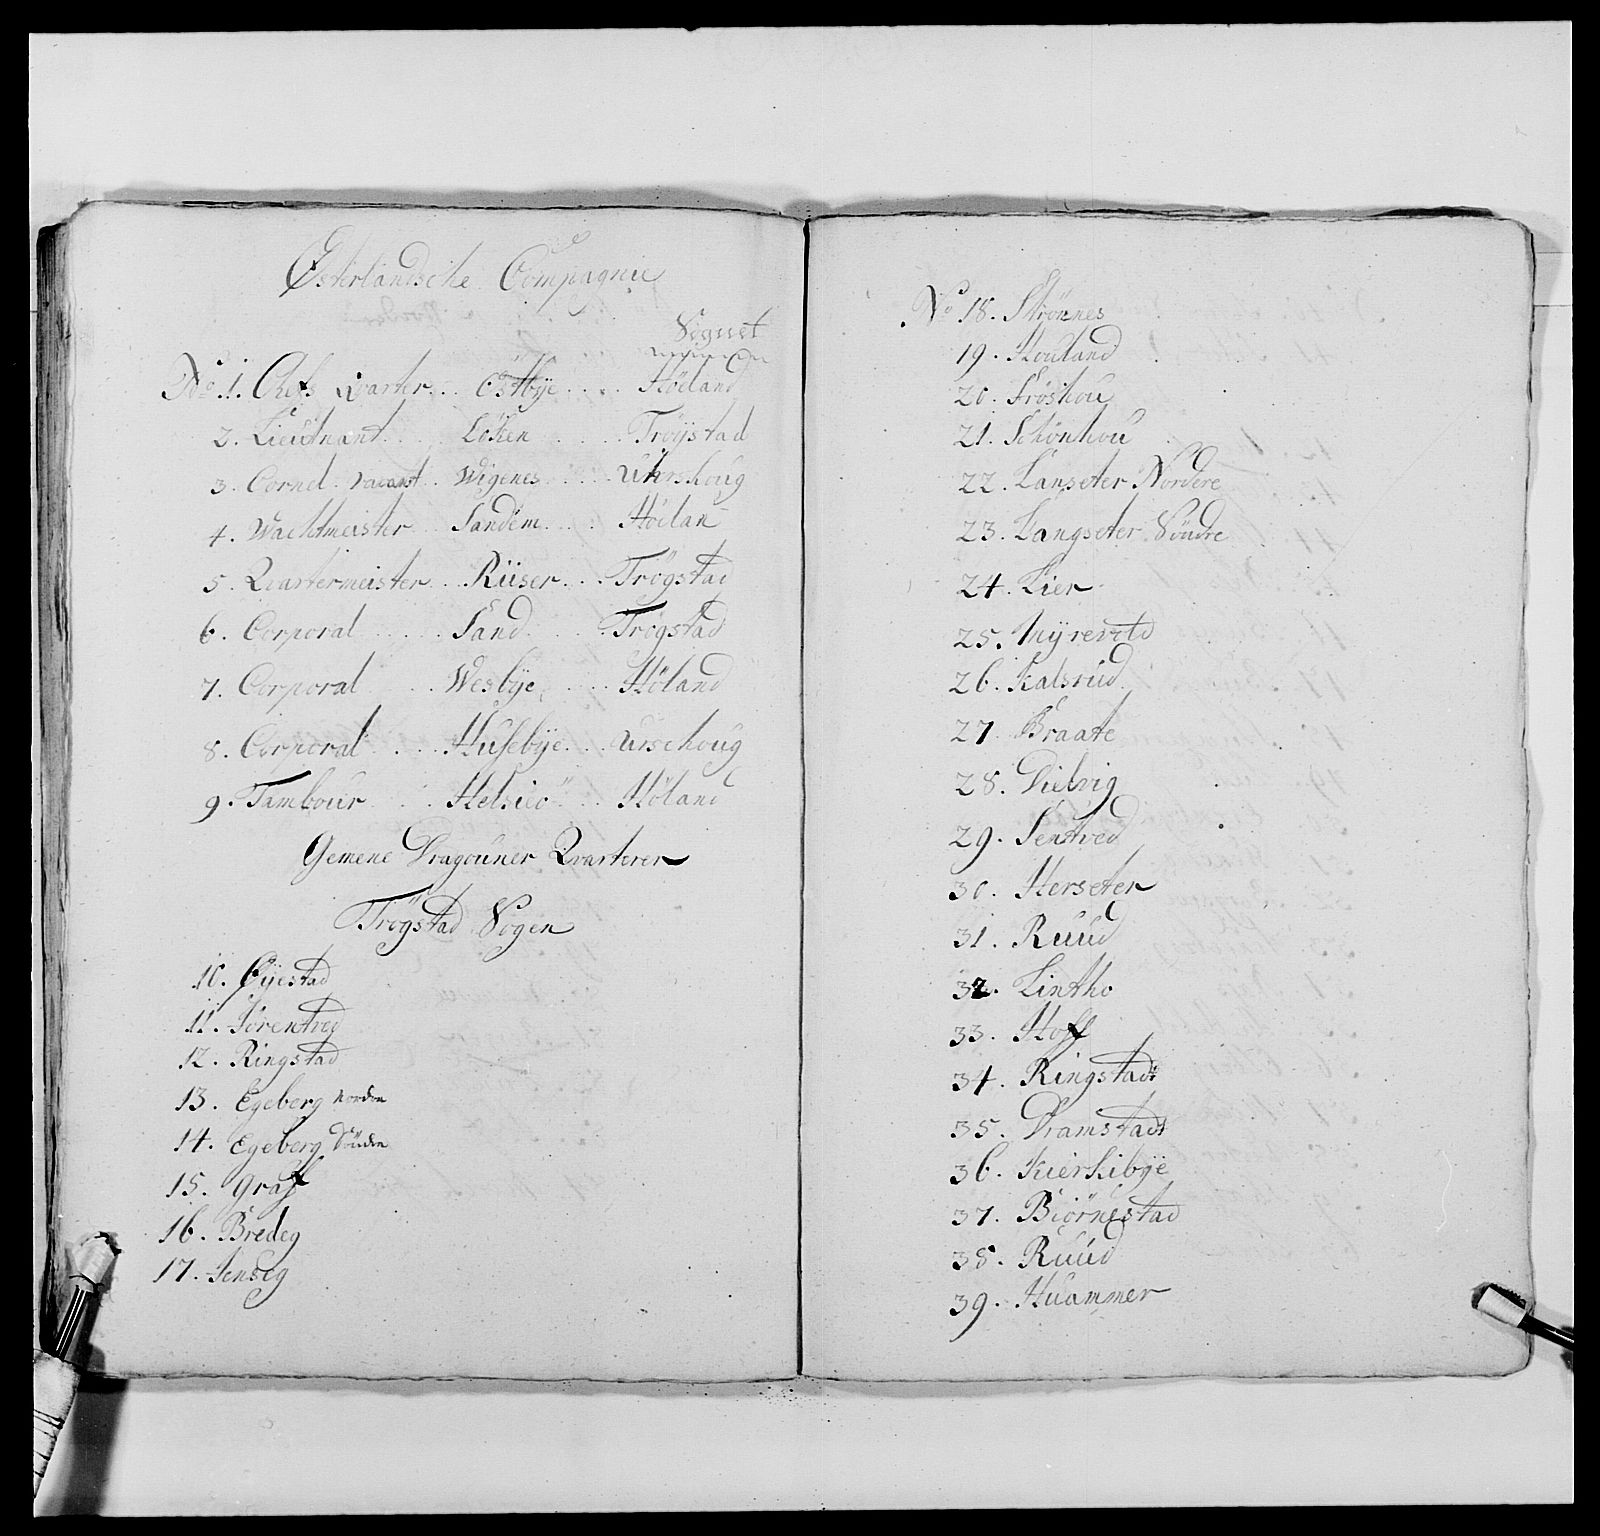 Österlandsche Compagnie
Sognet
No 1. Chefs Qvarter... Östbye .... Höeland
2. Lieutnant.... Löken ..... Tröijstad
3. Cornet vacant.. Wigenes..... Uhrshoug
4. Wachtmeister... Sandem.... Höelan
5. Qvartermeister... Riiser.... Trögstad
6. Corporal ..... Sand..... Trögstad
7. Corporal .... Wesbÿe ..... Höland
8. Corporal .... Hussebÿe... Urschoug
9. Tambour .... Helsieö .... Höland
Gemene Dragouner Qvarterer
Trögstad Sogen
10. Öÿestad
11. Sörentved
12. Ringstad
13. Egeberg Nordre
14. Egeberg Söndre
15. Graff
16. Bredeg
17. Jenseg
No 18. Strönnes
19. Houland
20. Fröshou
21. Schönhou
22. Lanseter Nordere
23. Langseter Söndre
24. Lier
25. Mÿrevold
26. Kalsrud
27. Braate
28. Dielvig
29. Sentved
30. Herseter
31. Ruud
32. Lintho
33. Hoff
34. Ringstadt
35. Dramstadt
36. Kierkibÿe
37. Biörnestad
38. Ruud
39. Huammer